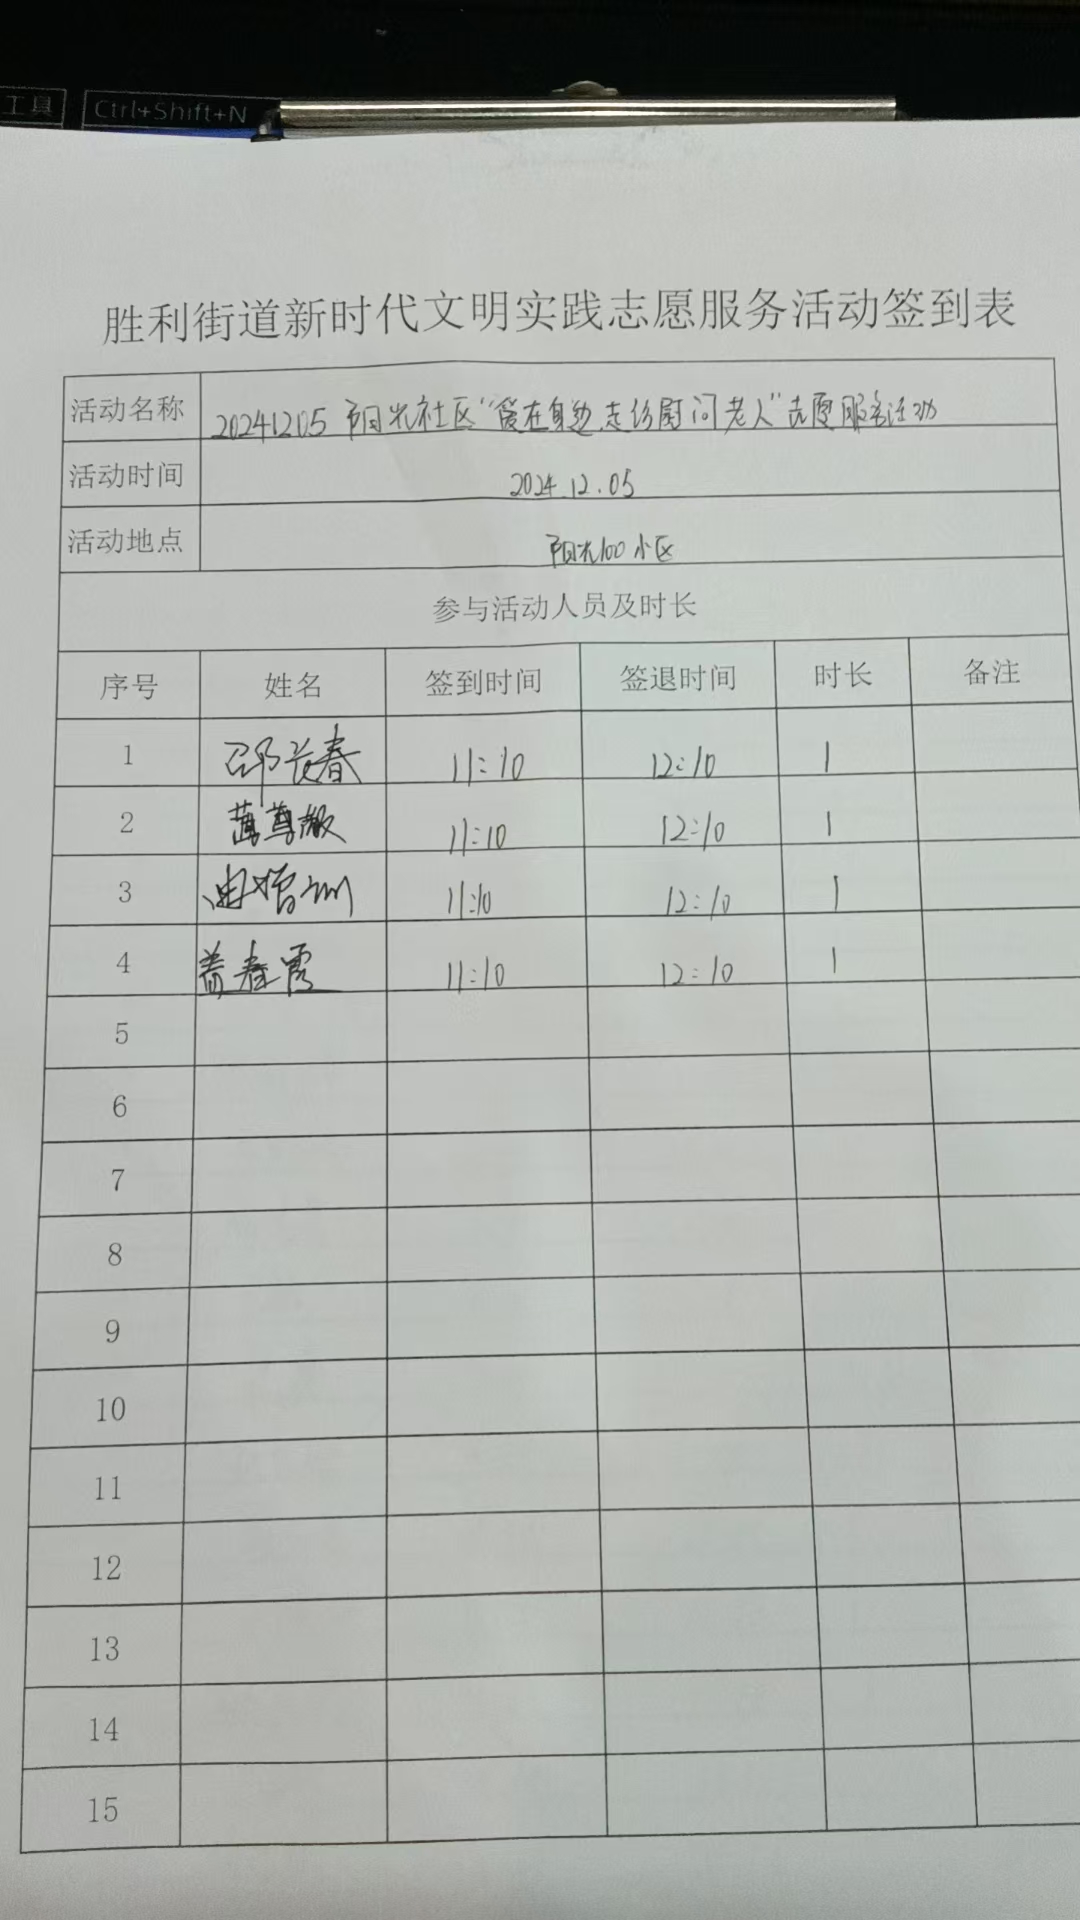 工具 Ctrl+Shift+N
胜利街道新时代文明实践志愿服务活动签到表
活动名称 20241205 阳光社区“爱在身边,走访慰问老人”志愿服务活动
活动时间 2024.12.05
活动地点 阳光100小区
参与活动人员及时长
序号 姓名 签到时间 签退时间 时长 备注
1 邵长春 11:10 12:10 1
2 尊敬 11:10 12:10 1
3 11:10 12:10 1
4 盖春霞 11:10 12:10 1
5
6
7
8
9
10
11
12
13
14
15